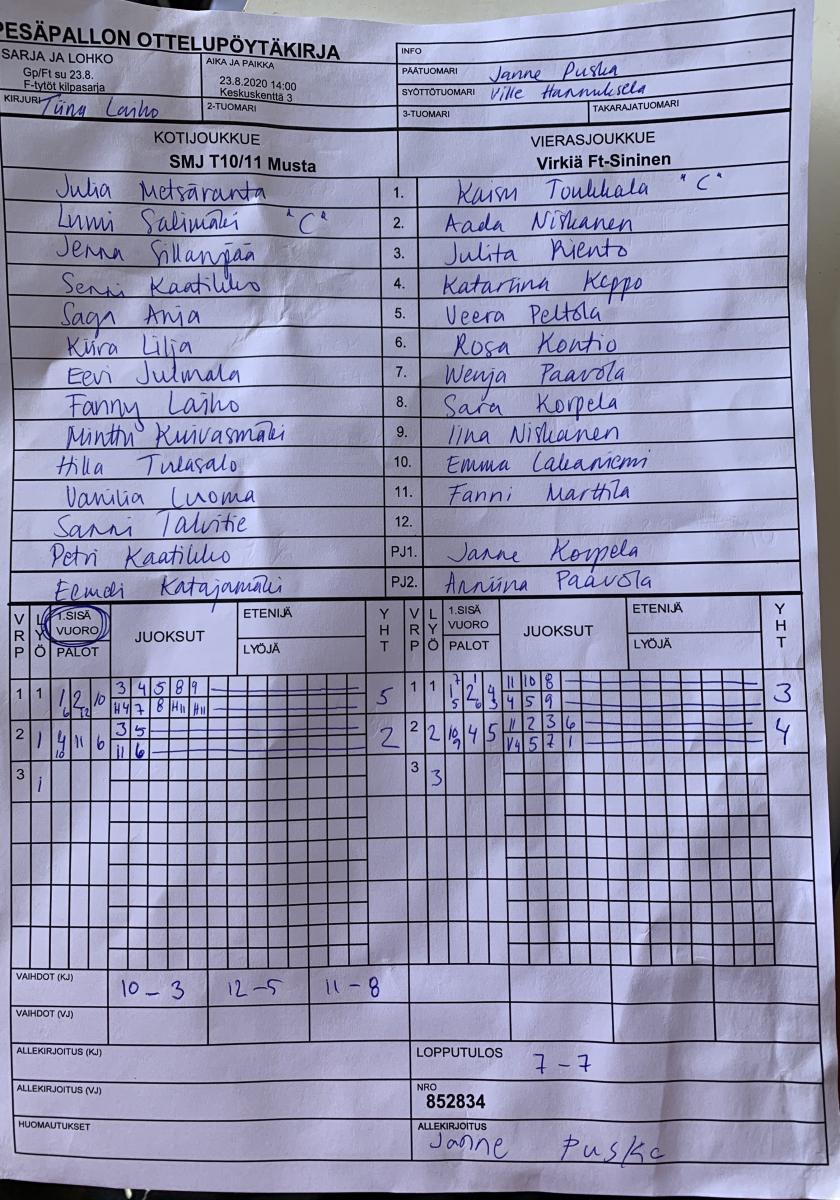 PESÄPALLON OTTELUPÖYTÄKIRJA
SARJA JA LOHKO
Gp/Ft su 23.8.
F-tytöt kilpasarja
AIKA JA PAIKKA
23.8.2020 14:00
Keskuskenttä 3
INFO
PÄÄTUOMARI Janne Puska
SYÖTTÖTUOMARI Ville Hannuksela
KIRJURI Tiina Laiho
2-TUOMARI
3-TUOMARI
TAKARAJATUOMARI
KOTIJOUKKUE
SMJ T10/11 Musta
VIERASJOUKKUE
Virkiä Ft-Sininen
Julia Metsäranta 1. Kaisu Toukkala "C"
Lumi Salimäki "C" 2. Aada Niskanen
Jenna Sillanpää 3. Julita Riento
Senni Kaatikko 4. Katariina Keppo
Saga Anja 5. Veera Peltola
Kiira Lilja 6. Rosa Kontio
Eevi Julmala 7. Wenja Paavola
Fanny Laiho 8. Sara Korpela
Minttu Kuivasmäki 9. Iina Niskanen
Hilla Tulasalo 10. Emma Lakaniemi
Vanilia Luoma 11. Fanni Marttila
Sanni Talvitie 12.
Petri Kaatikko PJ1. Janne Korpela
Eemeli Katajamäki PJ2. Anniina Paavola
VRP LYÖ 1.SISÄ VUORO PALOT JUOKSUT ETENIJÄ LYÖJÄ YHT VRP LYÖ 1.SISÄ VUORO PALOT JUOKSUT ETENIJÄ LYÖJÄ YHT
1 1 1 2 10 3 4 5 8 9 5 1 1 1 2 4 11 10 8 3
6 12 H4 7 8 H11 H11 5 6 3 4 5 9
2 1 4 11 6 3 5 2 2 2 10 4 5 11 2 3 6 4
10 11 6 9 V4 5 7 1
3 1 3 3
VAIHDOT (KJ) 10 - 3 12 - 5 11 - 8
VAIHDOT (VJ)
ALLEKIRJOITUS (KJ)
LOPPUTULOS 7 - 7
ALLEKIRJOITUS (VJ)
NRO
852834
HUOMAUTUKSET
ALLEKIRJOITUS
Janne Puska